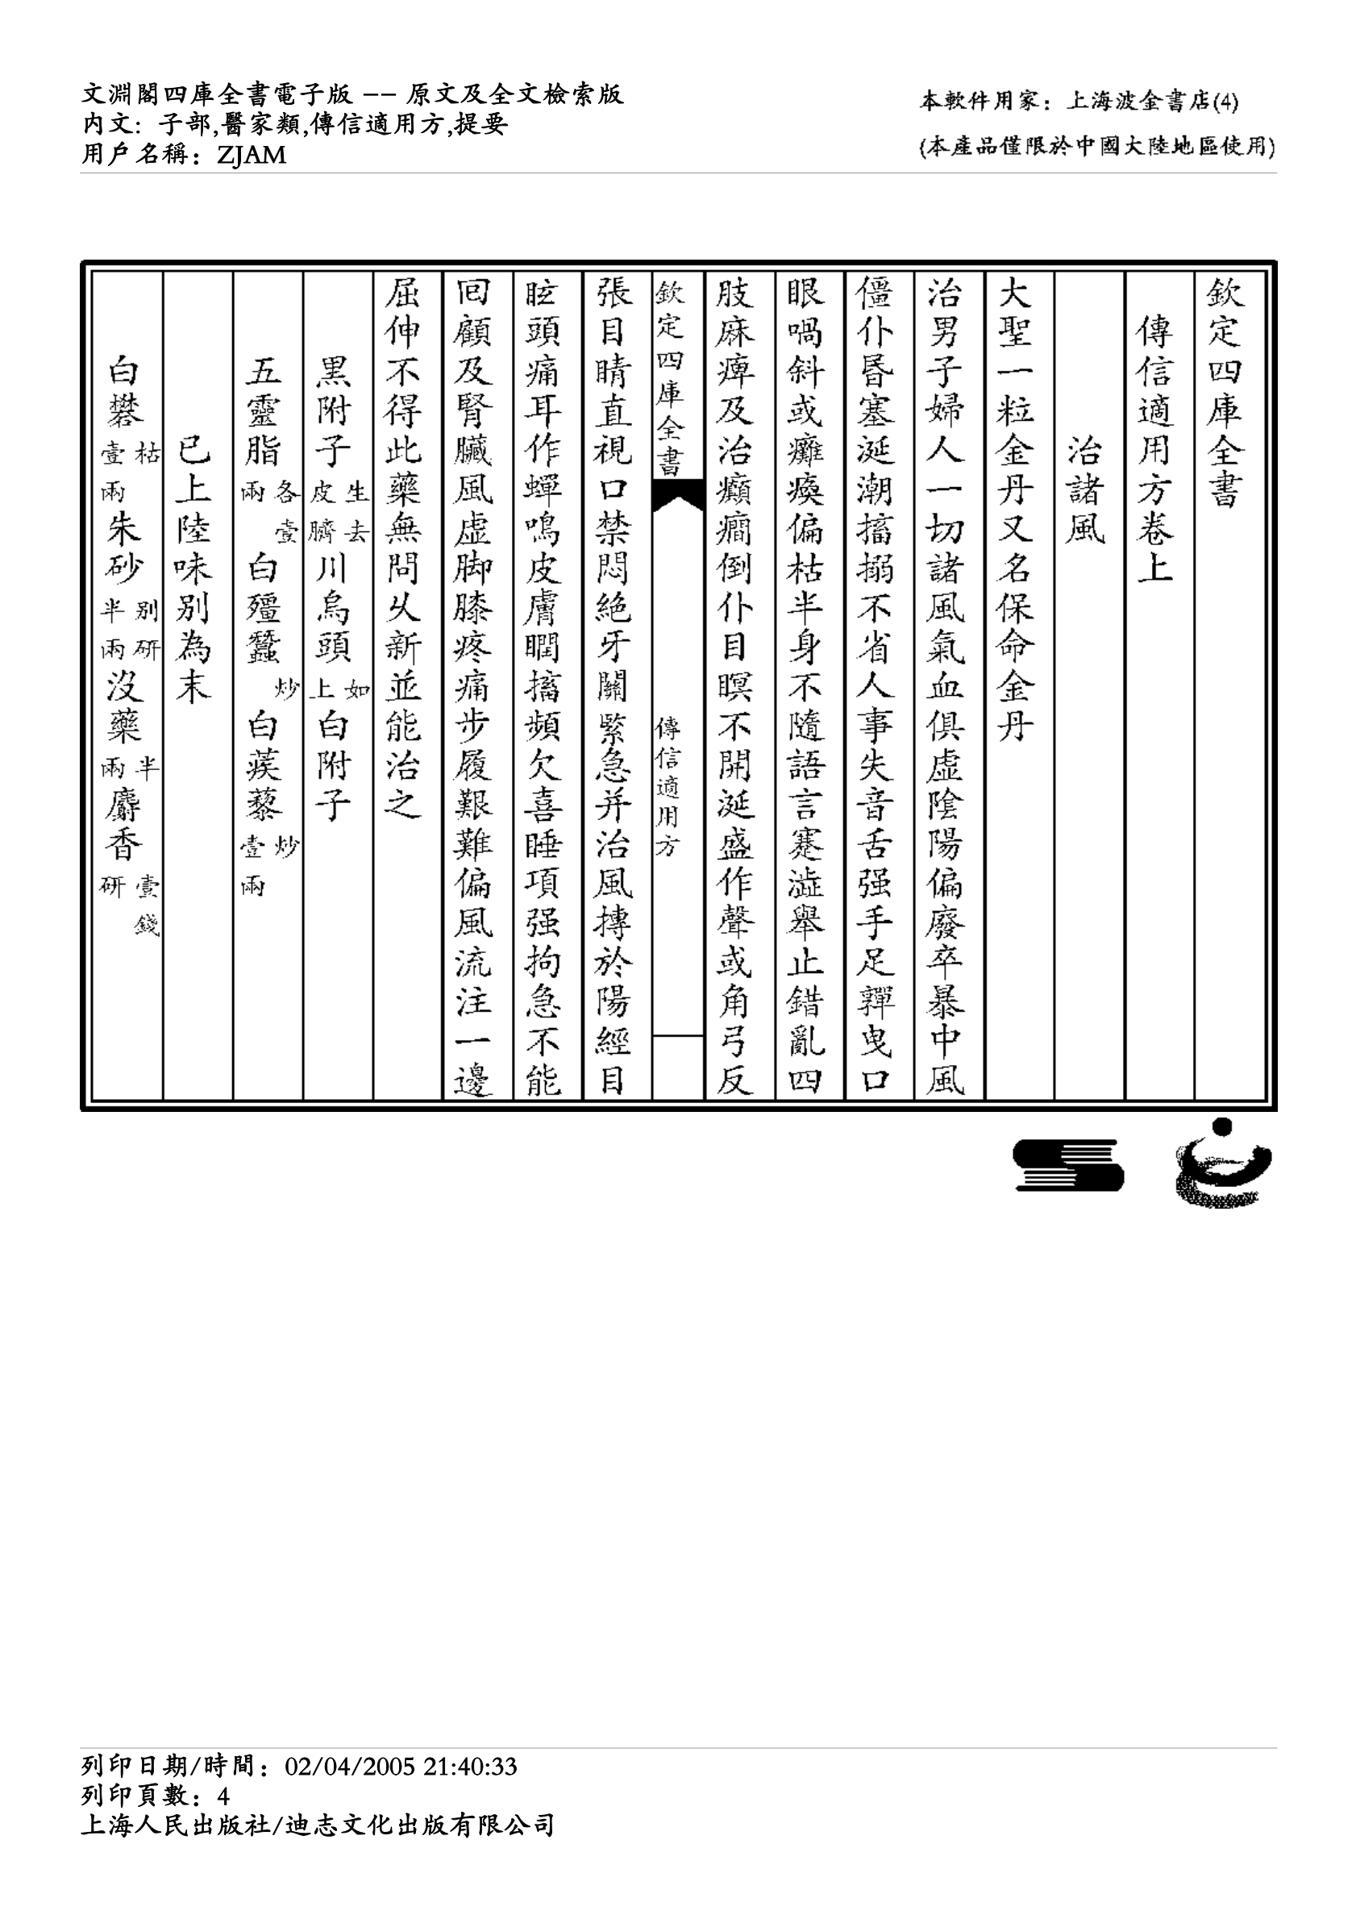 文淵閣四庫全書電子版 -- 原文及全文檢索版
内文: 子部,醫家類,傳信適用方,提要
用戶名稱: ZJAM
本軟件用家: 上海波金書店(4)
(本產品僅限於中國大陸地區使用)
欽定四庫全書
傳信適用方卷上
治諸風
大聖一粒金丹又名保命金丹
治男子婦人一切諸風氣血俱虛陰陽偏廢卒暴中風
僵仆昏塞涎潮搐搦不省人事失音舌强手足嚲曳口
眼喎斜或癱瘓偏枯半身不隨語言蹇澁舉止錯亂四
肢麻痺及治癲癇倒仆目瞑不開涎盛作聲或角弓反
欽定四庫全書
傳信適用方
張目睛直視口禁悶絶牙關緊急并治風搏於陽經目
眩頭痛耳作蟬鳴皮膚瞤搐頻欠喜睡項强拘急不能
回顧及腎臟風虚脚膝疼痛步履艱難偏風流注一邊
屈伸不得此藥無問乆新並能治之
黒附子生去皮臍川烏頭如上白附子
五靈脂各壹兩白殭蠶炒白蒺藜炒壹兩
已上陸味别為末
白礬枯壹兩朱砂别研半兩沒藥半兩麝香壹錢研
列印日期/時間: 02/04/2005 21:40:33
列印頁數: 4
上海人民出版社/迪志文化出版有限公司